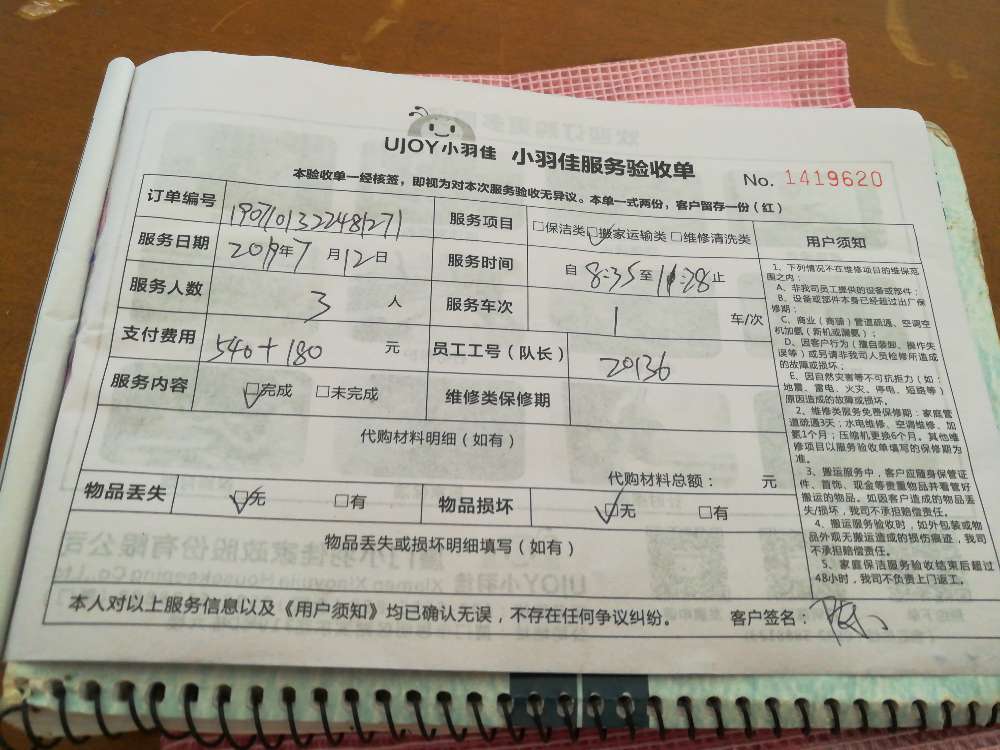 UJOY小羽佳 小羽佳服务验收单
No. 1419620
本验收单一经核签，即视为对本次服务验收无异议。本单一式两份，客户留存一份（红）
订单编号 1907101322481271 服务项目 □保洁类□搬家运输类□维修清洗类
服务日期 2019年7月12日 服务时间 自8:35至11:28止
服务人数 3人 服务车次 1 车/次
支付费用 540+180 元 员工工号（队长） 20136
服务内容 □完成 □未完成 维修类保修期
代购材料明细（如有）
代购材料总额： 元
物品丢失 □无 □有 物品损坏 □无 □有
物品丢失或损坏明细填写（如有）
本人对以上服务信息以及《用户须知》均已确认无误，不存在任何争议纠纷。 客户签名：
用户须知
1、下列情况不在维修项目的维保范
围之内：
A、非我司员工提供的设备或部件；
B、设备或部件本身已经超过出厂保
修期；
C、商业（商铺）管道疏通、空调空
机加氨（新机或漏氨）；
D、因客户行为（擅自装卸、操作失
误等）或另请非我司人员检修所造成
的故障或损坏；
E、因自然灾害等不可抗拒力（如：
地震、雷电、火灾、停电、短路等）
原因造成的故障或损坏。
2、维修类服务免费保修期：家庭管
道疏通3天；水电维修、空调维修、加
氨1个月；压缩机更换6个月。其他维
修项目以服务验收单填写的保修期为
准。
3、搬运服务中，客户应随身保管证
件、首饰、现金等贵重物品并看管好
搬运的物品。如因客户造成的物品丢
失/损坏，我司不承担赔偿责任。
4、搬运服务验收时，如外包装或物
品外观无搬运造成的损伤痕迹，我司
不承担赔偿责任。
5、家庭保洁服务验收结束后超过
48小时，我司不负责上门返工。